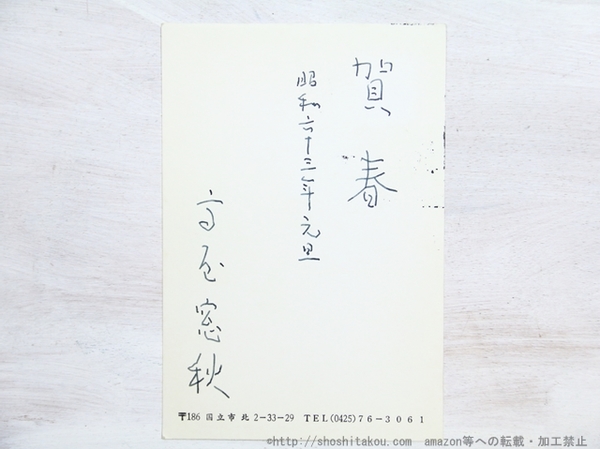 賀春
昭和六十三年元旦
高屋窓秋
〒186 国立市北2-33-29 TEL(0425)76-3061
©http://shoshitakou.com amazon等への転載・加工禁止